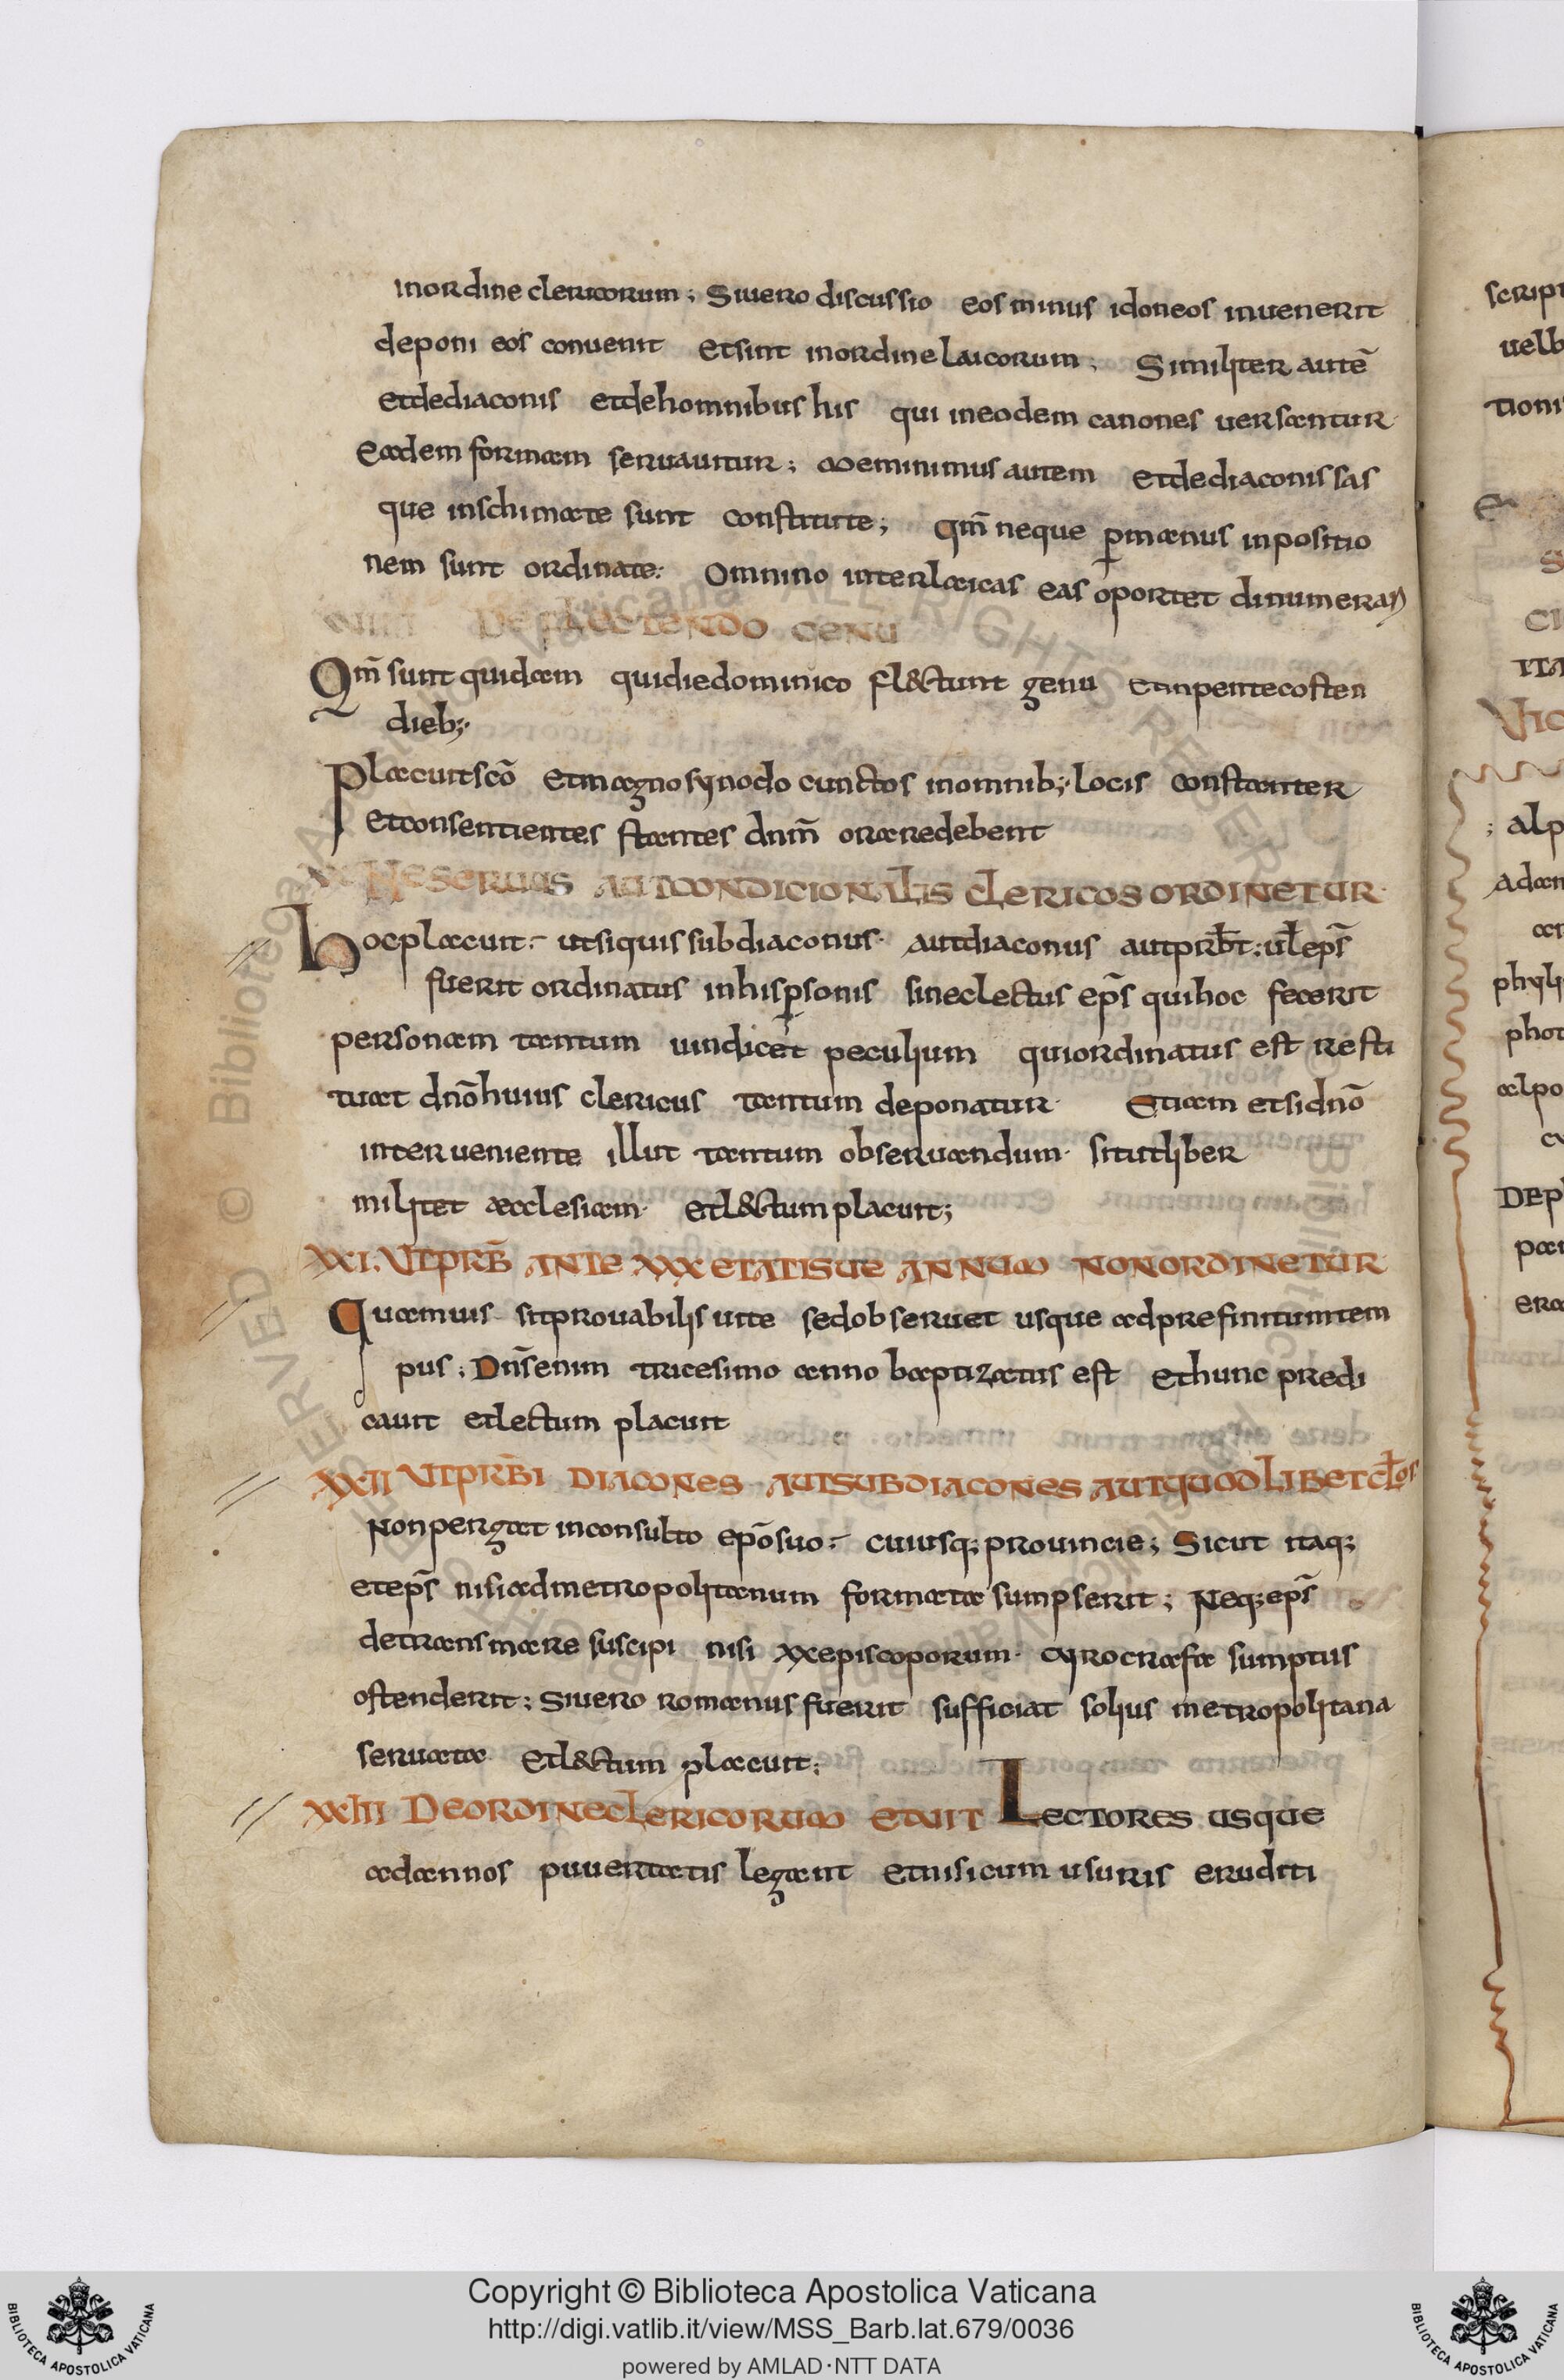 inordine clericorum; Siuero discussio eos minus idoneos inuenerit
deponi eos conuenit etsint inordine laicorum; Similiter autē
etdediaconis etdehomnibus his qui ineodem canones uersantur
eadem formam seruauitur; meminimus autem etdediaconissas
que inschimate sunt constitute; qm̄ neque p̱manus inpositio
nem sunt ordinate: Omnino interlaicas eas oportet dinumerari
De flectendo genu
Qm̄ sunt quidam quidiedominico flectunt genu etinpentecosten
dieb;
Placuitscō etmagnosynodo cunctos inomnib; locis constanter
etconsentientes stantes dnm̄ oraredebent
xx Neseruus autcondicionalis clericos ordinetur
hocplacuit: utsiquissubdiaconus autdiaconus autprb̄t: ul̄ep̄s
fuerit ordinatus inhisp̱sonis sineclectus ep̄s quihoc fecerit
personam tantum uindicet peculium quiordinatus est resti
tuat dnōhuius clericus tantum deponatur Etiam etsidnō
interueniente illut tantum obseruandum situtliber
militet æcclesiam etlectum placuit;
xxi. Utprb̄ ante xxx etatisue annum nonordinetur
Quamuis sitprouabilis uite sedobseruet usque adprefinitumtem
pus; Dn̄senim tricesimo anno baptizatus est ethunc predi
cauit etlectum placuit
xxii utprb̄i diacones autsubdiacones autquodlibet cl̄os
Nonpergat inconsulto ep̄osuo: cuiusq; prouincie; Sicut itaq;
etep̄s nisiadmetropolitanum formata sumpserit; Neq; ep̄s
detransmare suscipi nisi xxepiscoporum cyrocrafa sumptus
ostenderit; Siuero romanus fuerit sufficiat solius metropolitana
seruata etlectum placuit;
xxiii Deordineclericorum etait Lectores usque
adannos puuertatis legant etnisicum usuris eruditi
script
uelb
tioni
s
ci
ita
phyli
phot
alpo
dep
Copyright © Biblioteca Apostolica Vaticana
http://digi.vatlib.it/view/MSS_Barb.lat.679/0036
powered by AMLAD·NTT DATA
BIBLIOTECA APOSTOLICA VATICANA
BIBLIOTECA APOSTOLICA VATICANA